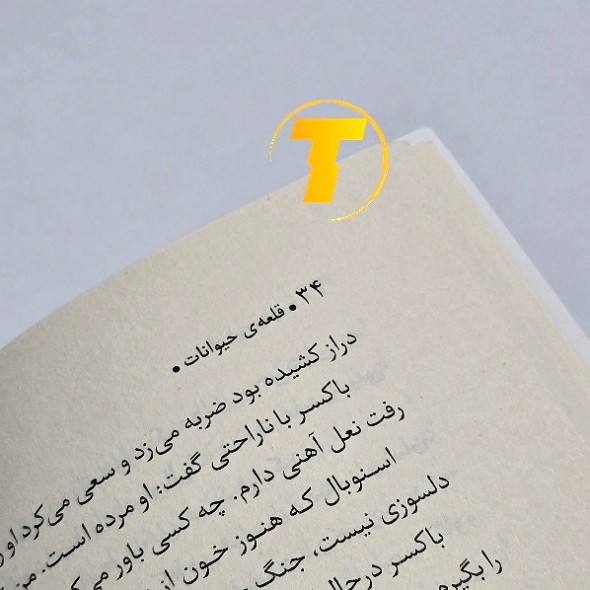 T
۳۴ • قلعه‌ی حیوانات •
دراز کشیده بود ضربه می‌زد و سعی می‌کرد او
باکسر با ناراحتی گفت: او مرده است. من
رفت نعل آهنی دارم. چه کسی باور
اسنوبال که هنوز خون از
دلسوزی نیست، جنگ
باکسر درحال
را بگیرم